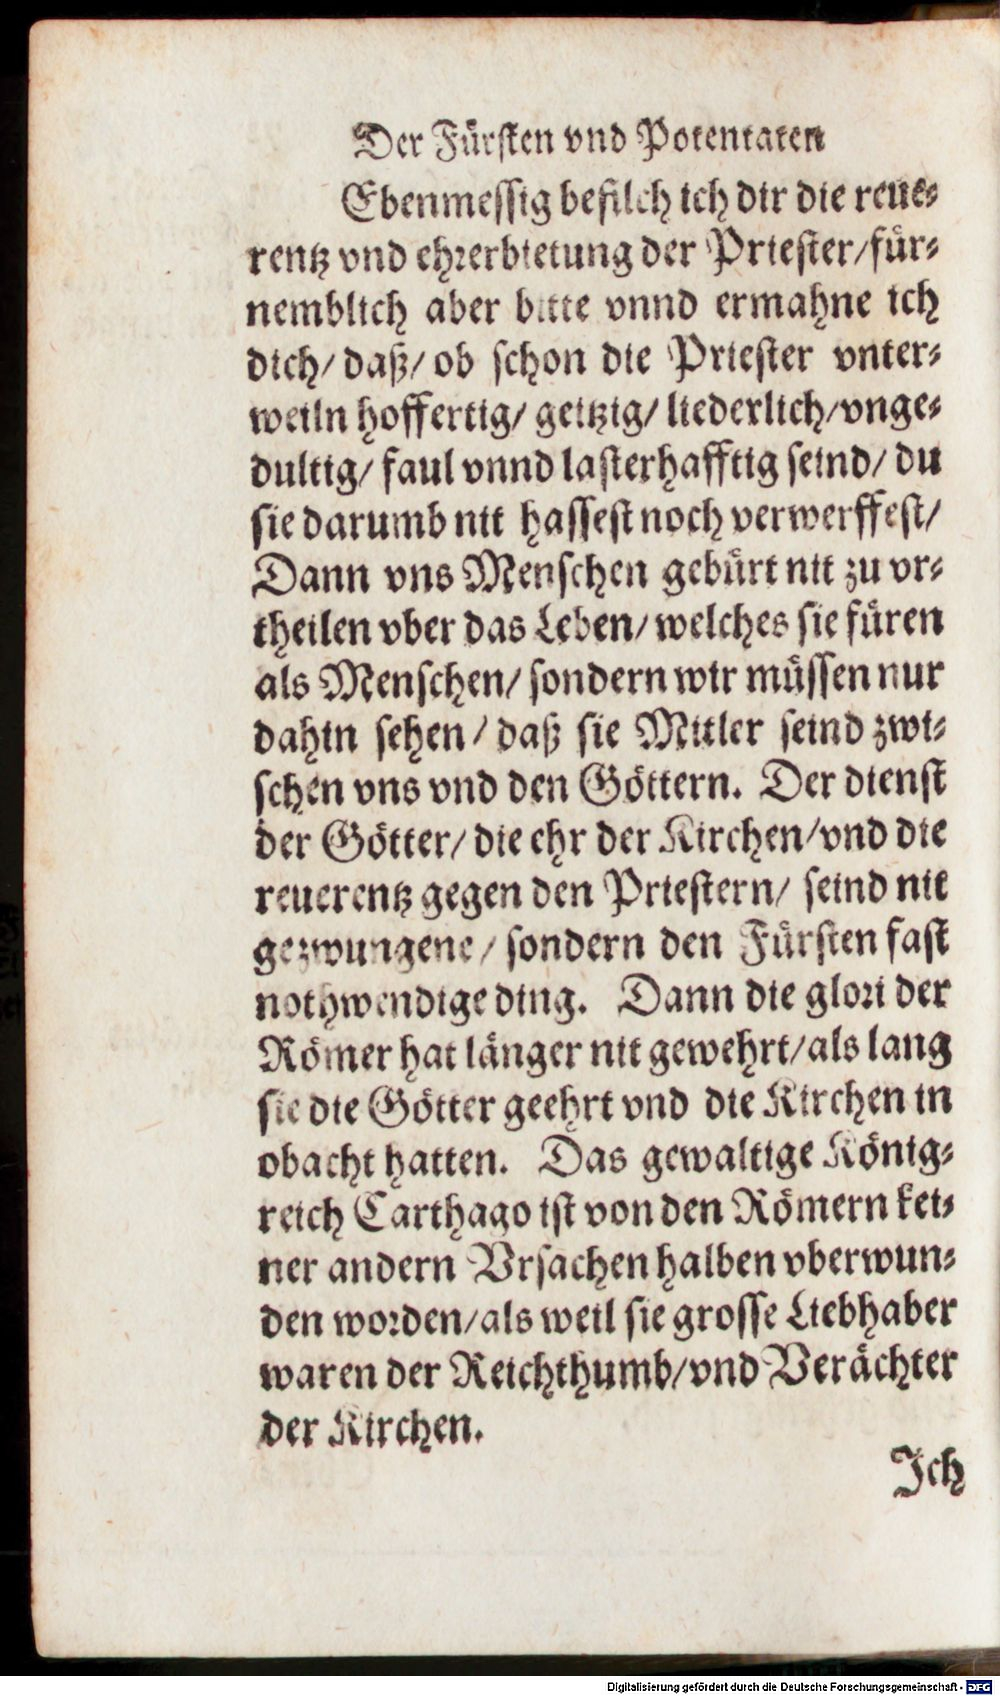 Der Fürsten vnd Potentaten
Ebenmessig befilch ich dir die reue-
rentz vnd ehrerbietung der Priester/für-
nemblich aber bitte vnnd ermahne ich
dich/ daß/ ob schon die Priester vnter-
weiln hoffertig/ geitzig/ liederlich/vnge-
dultig/ faul vnnd lasterhafftig seind/ du
sie darumb nit hassest noch verwerffest/
Dann vns Menschen gebürt nit zu vr-
theilen vber das Leben/ welches sie füren
als Menschen/ sondern wir müssen nur
dahin sehen/ daß sie Mitler seind zwi-
schen vns vnd den Göttern. Der dienst
der Götter/ die ehr der Kirchen/vnd die
reuerentz gegen den Priestern/ seind nit
gezwungene/ sondern den Fürsten fast
nothwendige ding. Dann die glori der
Römer hat länger nit gewehrt/als lang
sie die Götter geehrt vnd die Kirchen in
obacht hatten. Das gewaltige König-
reich Carthago ist von den Römern kei-
ner andern Vrsachen halben vberwun-
den worden/als weil sie grosse Liebhaber
waren der Reichthumb/vnd Verächter
der Kirchen.
Ich
Digitalisierung gefördert durch die Deutsche Forschungsgemeinschaft - DFG